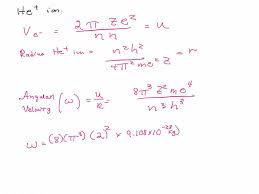 He⁺ ion.
Ve⁻ = 2πZe² / nh = u
Radius He⁺ ion = n²h² / 4π²me²Z = r
Angular Velocity (ω) = u/r = 8π³Z²me⁴ / n³h³
ω = (8)(π³)(2)² × 9.108×10⁻²⁸ g)